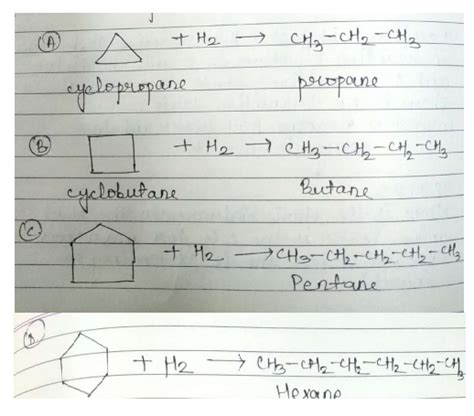 (A) + H2 → CH3-CH2-CH3
cyclopropane propane
(B) + H2 → CH3-CH2-CH2-CH3
cyclobutane Butane
(C) + H2 → CH3-CH2-CH2-CH2-CH3
Pentane
+ H2 → CH3-CH2-CH2-CH2-CH2-CH3
Hexane